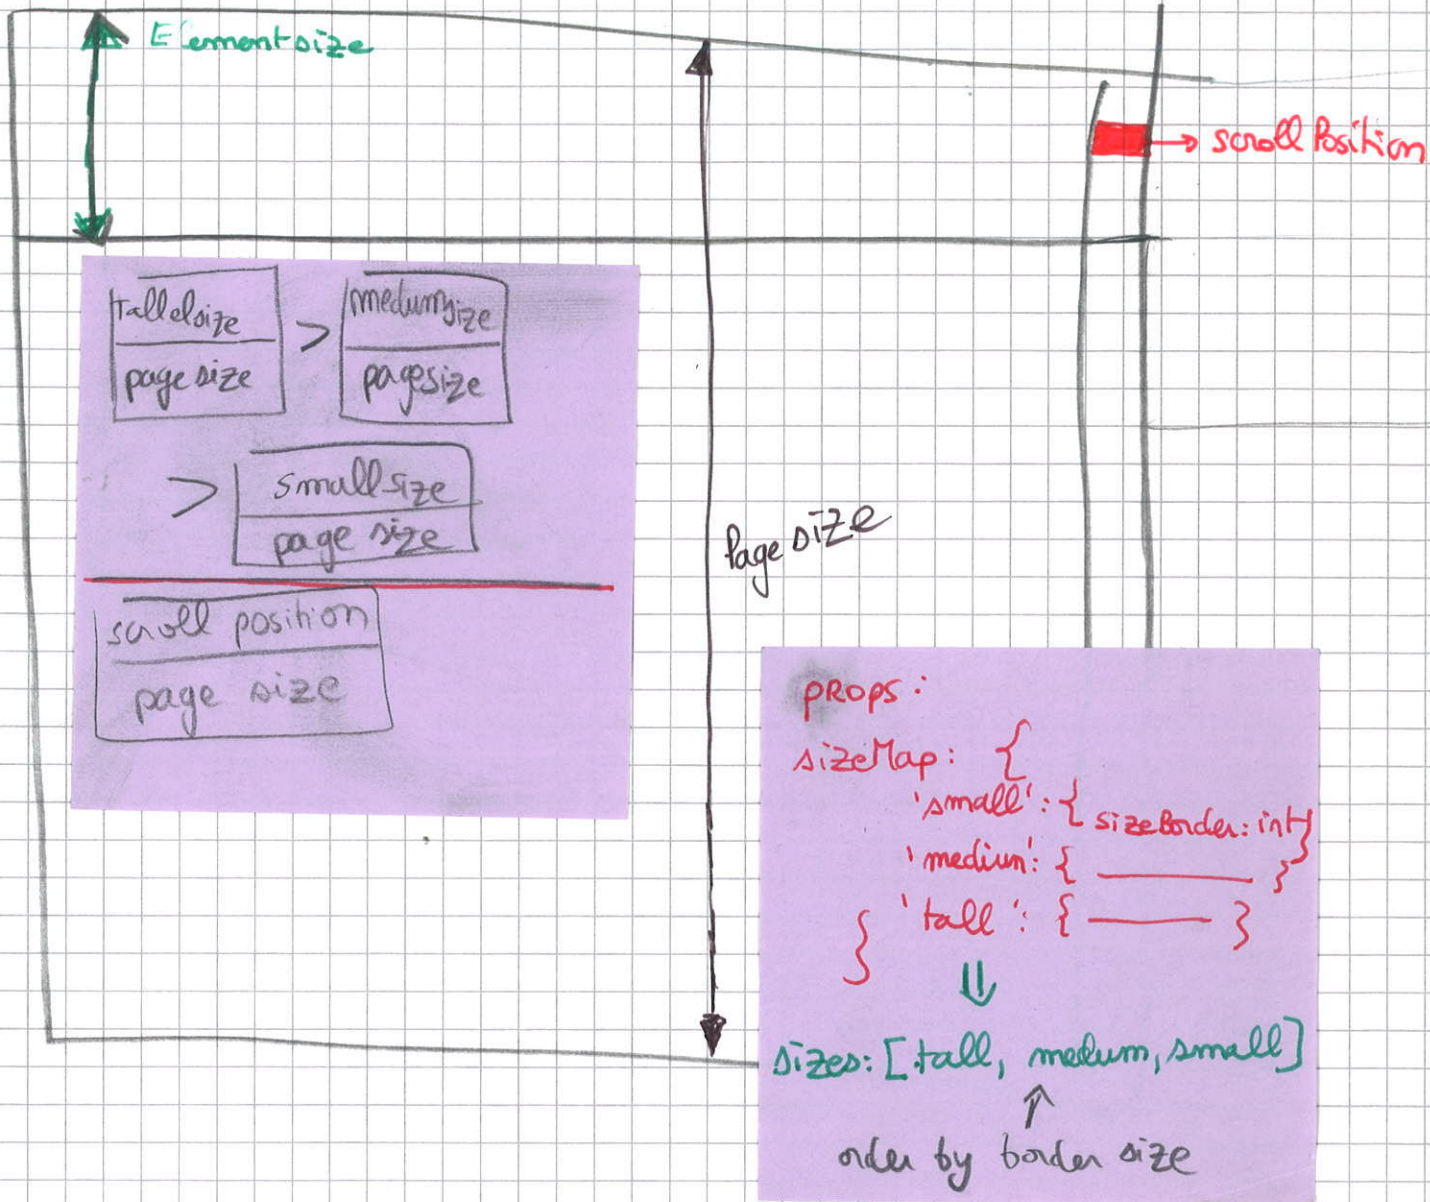 Elementsize
→ scroll Position
tallelsize
page size
>
medumsize
pagesize
>
smallsize
page size
scroll position
page size
Page size
props:
sizeMap: {
'small': { sizeBorder: int}
'medium': { ______ }
'tall': { ______ }
}
⇓
sizes: [tall, medum, small]
↑
order by border size